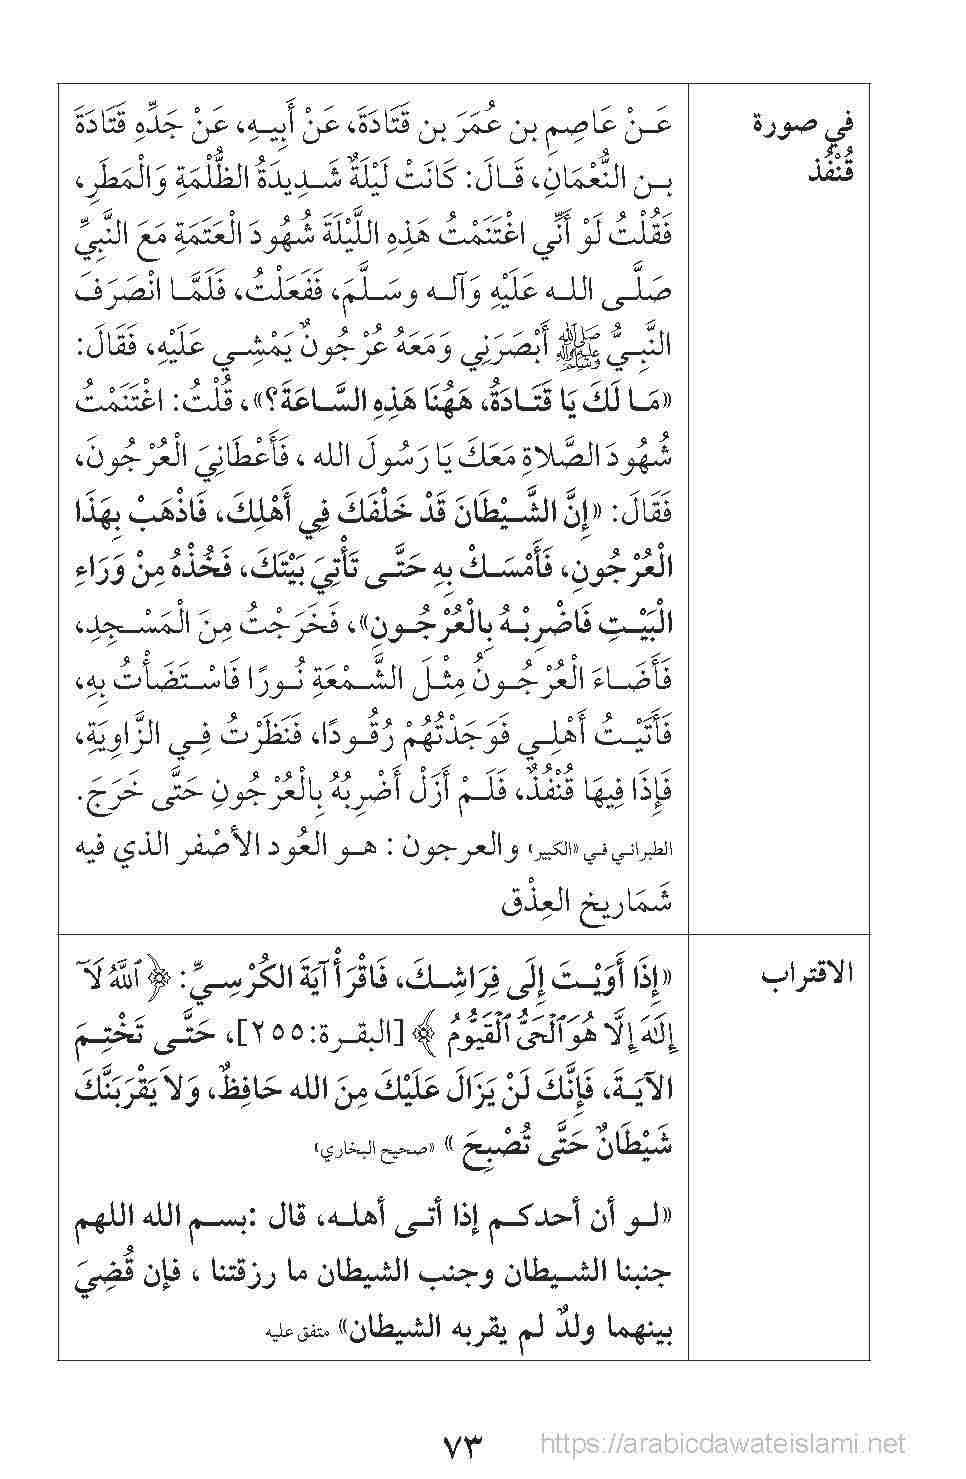 في صورة
قُنْفُذ
عَـنْ عَاصِمِ بن عُمَرَ بن قَتَادَةَ، عَنْ أَبِيـهِ، عَنْ جَدِّهِ قَتَادَةَ
بـن النُّعْمَانِ، قَـالَ: كَانَتْ لَيْلَةٌ شَـدِيدَةُ الظُّلْمَةِ وَالْمَطَرِ،
فَقُلْتُ لَوْ أَنِّي اغْتَنَمْتُ هَذِهِ اللَّيْلَةَ شُهُودَ الْعَتَمَةِ مَعَ النَّبِيِّ
صَلَّـى اللـه عَلَيْهِ وَآلـه وسَـلَّمَ، فَفَعَلْتُ، فَلَمَّـا انْصَرَفَ
النَّبِـيُّ ﷺ أَبْصَرَنِي وَمَعَهُ عُرْجُونٌ يَمْشِـي عَلَيْهِ، فَقَالَ:
«مَـا لَكَ يَا قَتَـادَةُ، هَهُنَا هَذِهِ السَّـاعَةَ؟»، قُلْتُ: اغْتَنَمْتُ
شُهُودَ الصَّلاةِ مَعَكَ يَا رَسُولَ الله ، فَأَعْطَانِيَ الْعُرْجُونَ،
فَقَالَ: «إِنَّ الشَّـيْطَانَ قَدْ خَلْفَكَ فِي أَهْلِكَ، فَاذْهَبْ بِهَذَا
الْعُرْجُونِ، فَأَمْسَـكْ بِهِ حَتَّـى تَأْتِيَ بَيْتَكَ، فَخُذْهُ مِنْ وَرَاءِ
الْبَيْـتِ فَاضْرِبْـهُ بِالْعُرْجُـونِ»، فَخَرَجْتُ مِنَ الْمَسْـجِدِ،
فَأَضَـاءَ الْعُرْجُـونُ مِثْـلَ الشَّـمْعَةِ نُـورًا فَاسْـتَضَأْتُ بِهِ،
فَأَتَيْـتُ أَهْلِـي فَوَجَدْتُهُمْ رُقُـودًا، فَنَظَرْتُ فِـي الزَّاوِيَةِ،
فَإِذَا فِيهَا قُنْفُذٌ، فَلَـمْ أَزَلْ أَضْرِبُهُ بِالْعُرْجُونِ حَتَّى خَرَجَ.
الطبرانـي فـي «الكبير» والعرجون : هـو العُود الأصْفر الذي فيه
شَمَاريخ العِذْق
الاقتراب
«إِذَا أَوَيْـتَ إِلَى فِرَاشِـكَ، فَاقْرَأْ آيَةَ الكُرْسِـيِّ: ﴿ ٱللَّهُ لَآ
إِلَٰهَ إِلَّا هُوَ ٱلْحَىُّ ٱلْقَيُّومُ ﴾ [البقـرة:٢٥٥]، حَتَّـى تَخْتِـمَ
الآيَـةَ، فَإِنَّكَ لَنْ يَزَالَ عَلَيْكَ مِنَ الله حَافِظٌ، وَلاَ يَقْرَبَنَّكَ
شَيْطَانٌ حَتَّى تُصْبِحَ » «صحيح البخاري»
«لـو أن أحدكـم إذا أتـى أهلـه، قال :بسـم الله اللهم
جنبنا الشـيطان وجنب الشيطان ما رزقتنا ، فإن قُضِيَ
بينهما ولدٌ لم يقربه الشيطان» متفق عليه
٧٣
https://arabicdawateislami.net